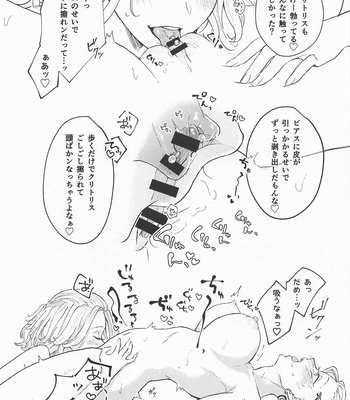 リトリスも
勃ってる♡
んなに触って
しかった？
のせいで
に擦れンだって…ッ
ぁあッ♡
ピアスに皮が
引っかかるせいで
ずっと剥き出しだもんな♡
歩くだけでクリトリス
ごしごし擦られて
頭ばかンなっちゃうよなぁ♡
あッ
だめ…ッ
吸うなぁっ♡